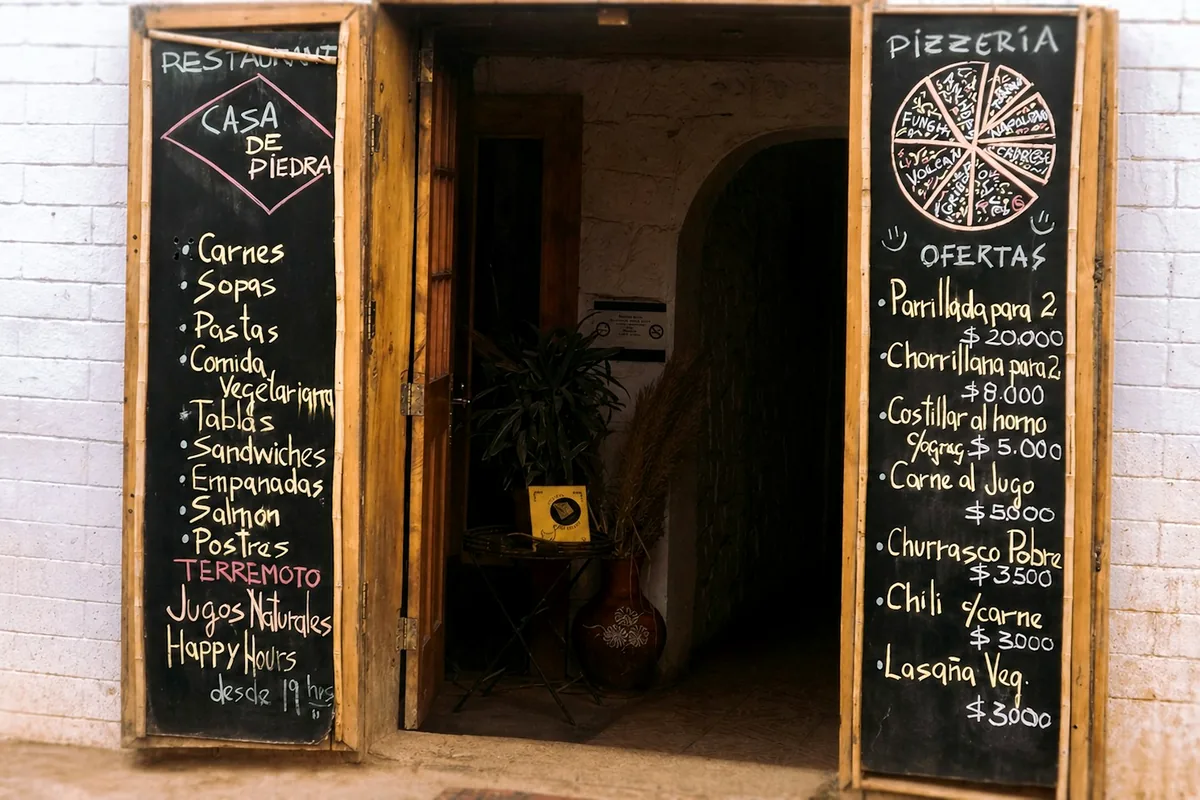 RESTAURANT
CASA
DE
PIEDRA
Carnes
Sopas
Pastas
Comida
Vegetariana
Tablas
Sandwiches
Empanadas
Salmon
Postres
TERREMOTO
Jugos Naturales
Happy Hours
desde 19 hrs
PiZZERiA
FUNGHI
NAPOLITANO
VOLCAN
OFERTAS
Parrillada para 2
$ 20.000
Chorrillana para 2
$ 8.000
Costillar al horno
c/agreg $ 5.000
Carne al Jugo
$ 5.000
Churrasco Pobre
$ 3500
Chili c/carne
$ 3.000
Lasaña Veg.
$ 3.000